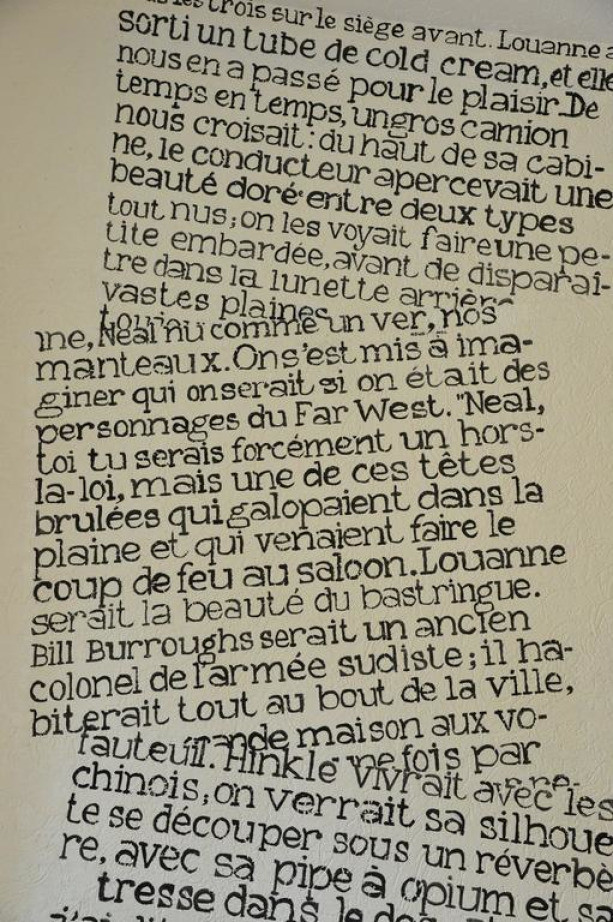 trois sur le siège avant. Louanne a
sorti un tube de cold cream, et elle
nous en a passé pour le plaisir. De
temps en temps, un gros camion
nous croisait: du haut de sa cabi-
ne, le conducteur apercevait une
beauté doré entre deux types
tout nus; on les voyait faire une pe-
tite embardée, avant de disparaî-
tre dans la lunette arrière
vastes plaines
ine, Neal nu comme un ver, nos
manteaux. On s'est mis à ima-
giner qui on serait si on était des
personnages du Far West. "Neal,
toi tu serais forcément un hors-
la-loi, mais une de ces têtes
brulées qui galopaient dans la
plaine et qui venaient faire le
coup de feu au saloon. Louanne
serait la beauté du bastringue.
Bill Burroughs serait un ancien
colonel de l'armée sudiste; il ha-
biterait tout au bout de la ville,
grande maison aux vo-
fauteuil. Hinkle ne fois par
vivrait avec les
chinois; on verrait sa silhoue
te se découper sous un réverbè
re, avec sa pipe à opium et sa
tresse dans le dos